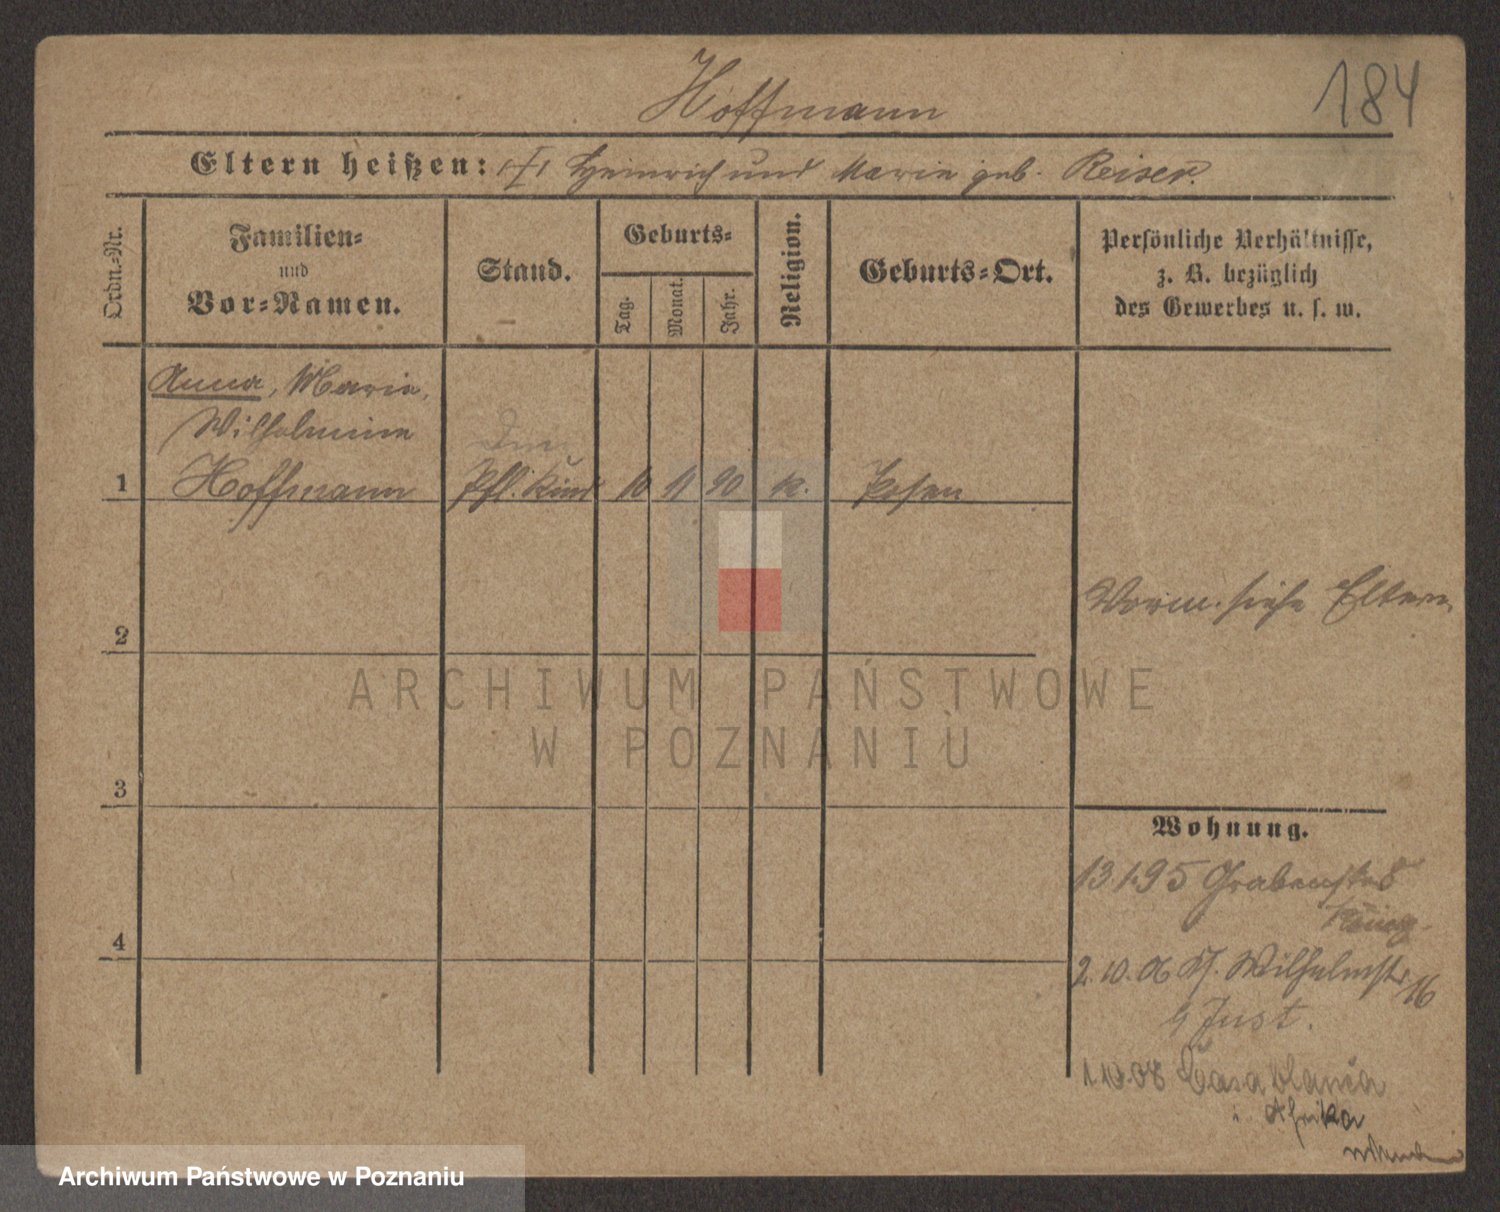 Hoffmann
184
Eltern heißen: Heinrich und Marie geb. Reiser.
Ordn.-Nr.
Familien-
und
Vor-Namen.
Stand.
Geburts-
Tag.
Monat.
Jahr.
Religion.
Geburts-Ort.
Persönliche Verhältnisse,
z. B. bezüglich
des Gewerbes u. s. w.
Anna, Marie,
Wilhelmine
1 Hoffmann Pfl. Kind 10 11 90 k. Posen
Vorm. siehe Eltern
2
ARCHIWUM PAŃSTWOWE
W POZNANIU
3
Wohnung.
13.1.95 Grabenstr 8
4
2.10.06 Wilhelmstr 16
Just.
08 Casablanca
i. Afrika
Archiwum Państwowe w Poznaniu